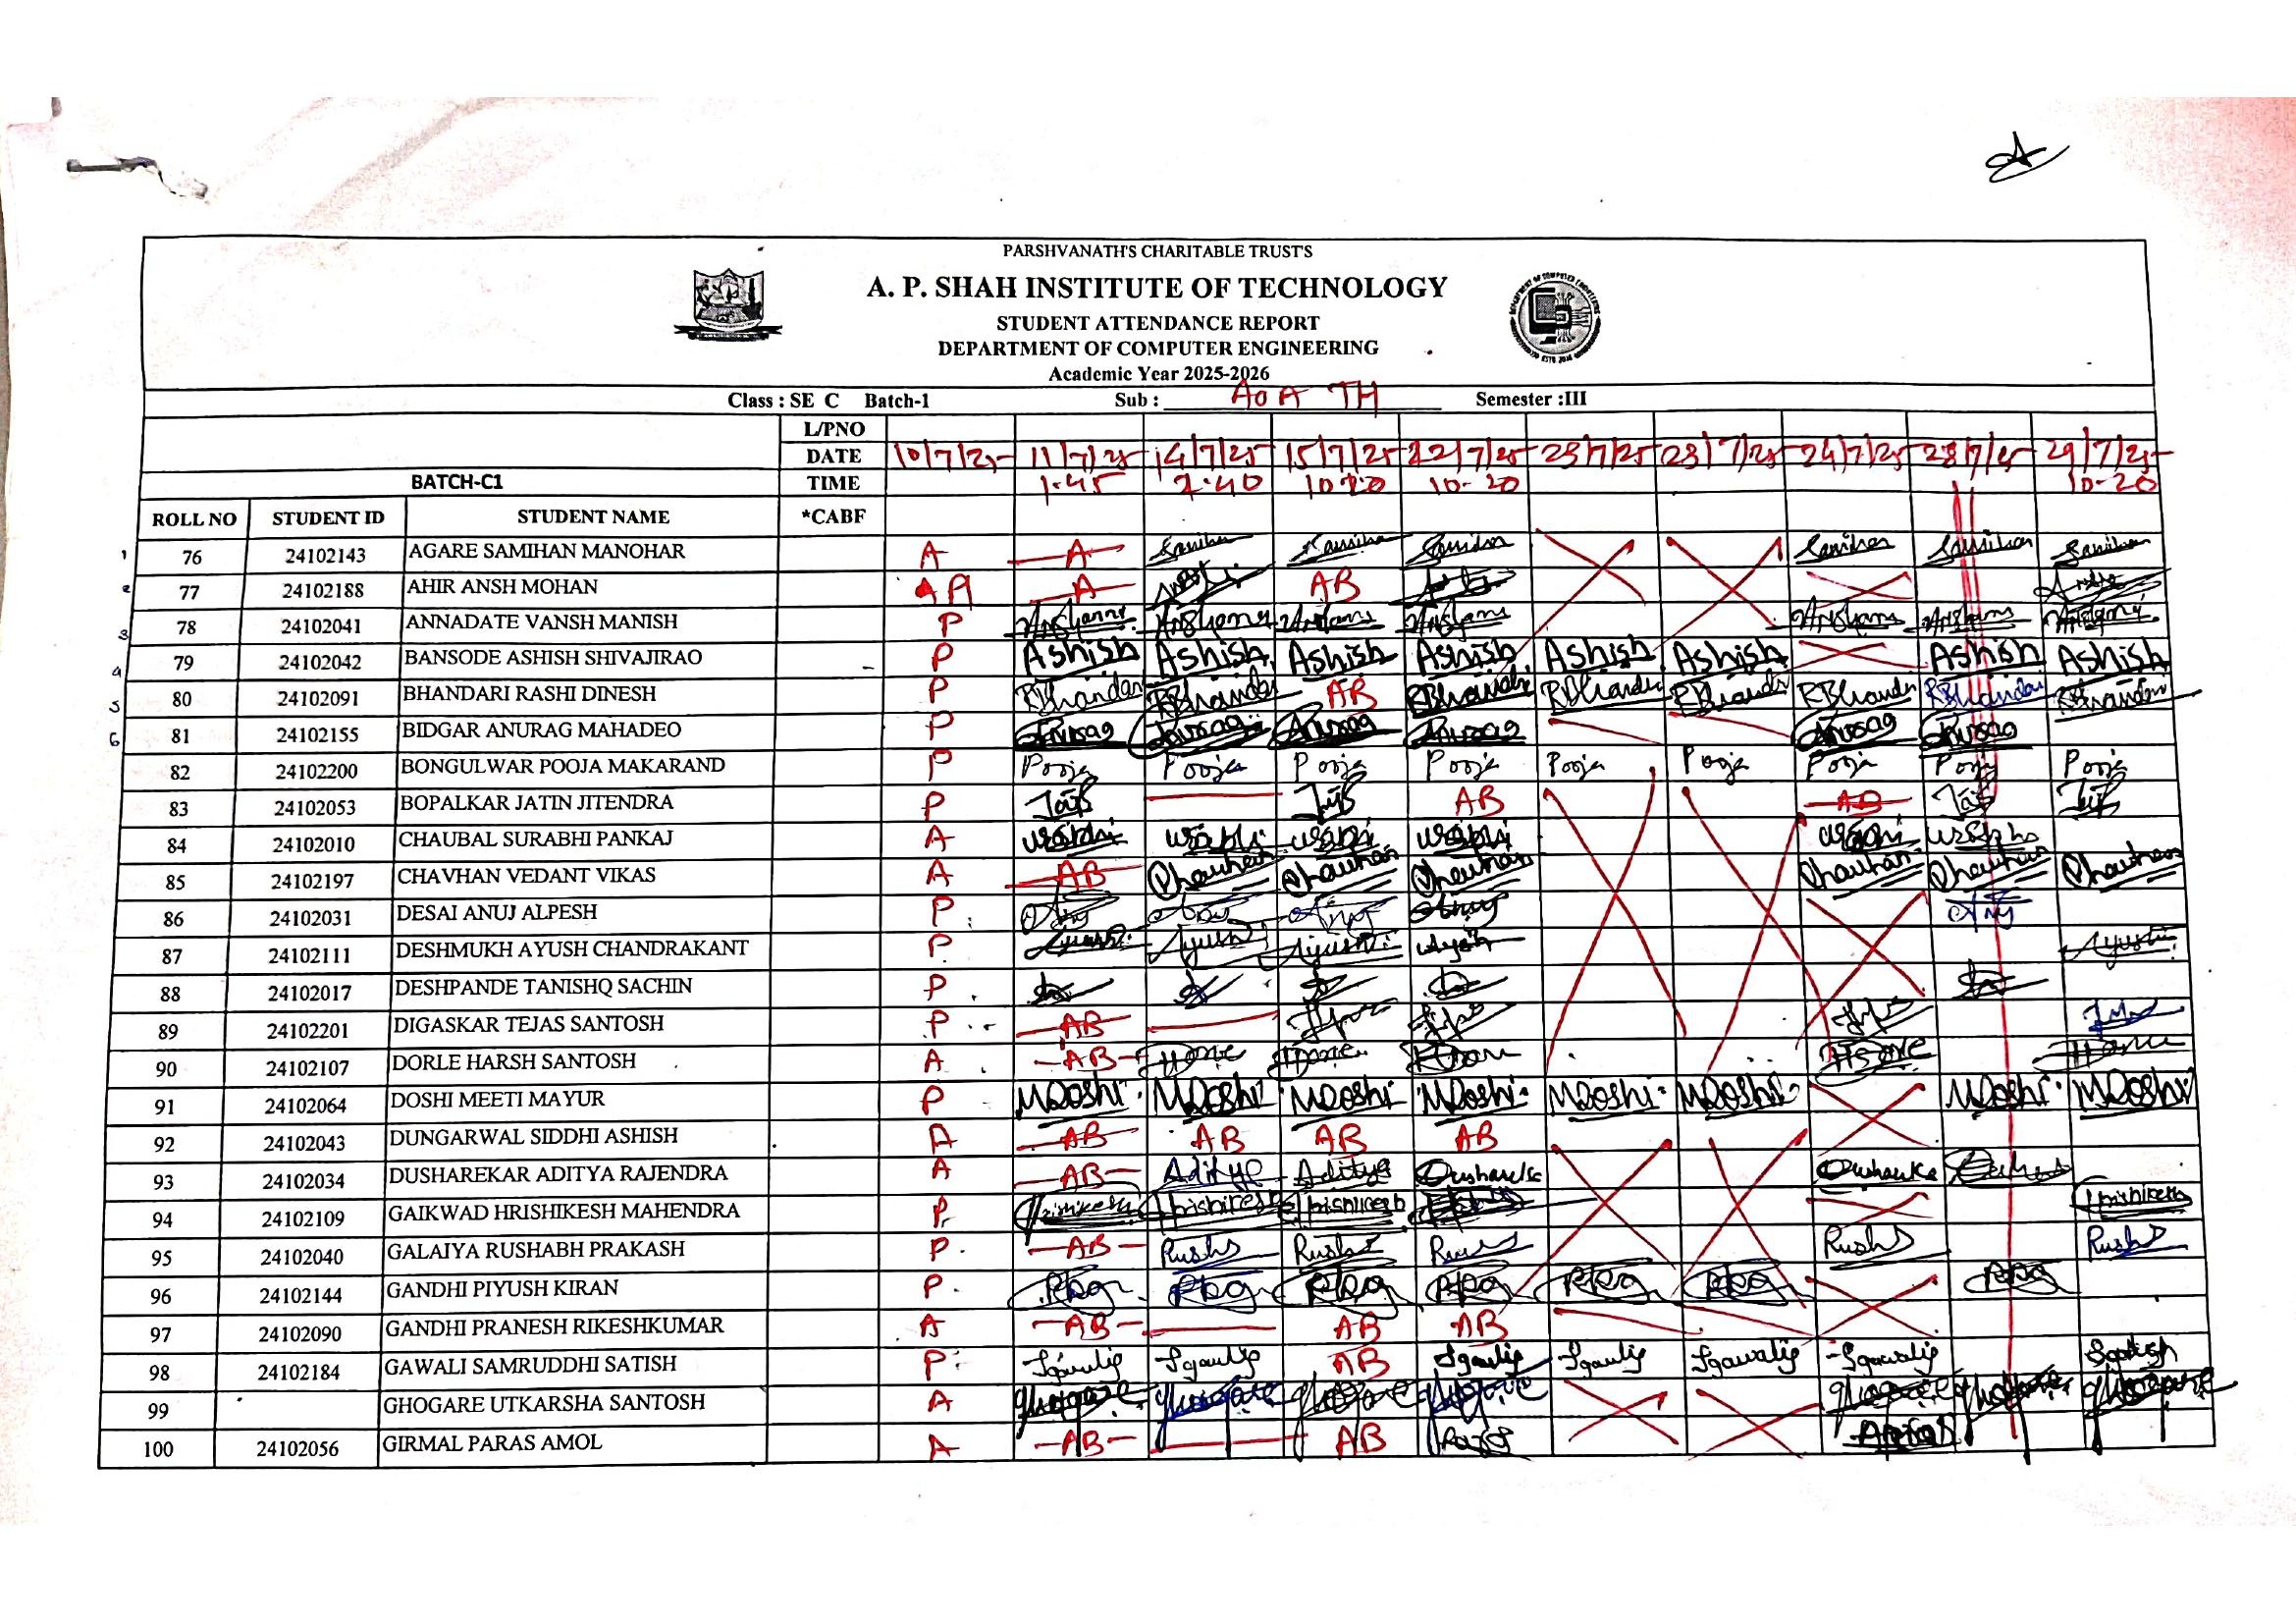 PARSHVANATH'S CHARITABLE TRUST'S
A. P. SHAH INSTITUTE OF TECHNOLOGY
STUDENT ATTENDANCE REPORT
DEPARTMENT OF COMPUTER ENGINEERING
Academic Year 2025-2026
Class : SE C Batch-1 Sub : AOA TH Semester :III
L/PNO
DATE 10/7/25 11/7/25 14/7/25 15/7/25 22/7/25 23/7/25 23/7/25 24/7/25 28/7/25 29/7/25
BATCH-C1 TIME 1.45 10.20 10-20 10-20
ROLL NO STUDENT ID STUDENT NAME *CABF
1 76 24102143 AGARE SAMIHAN MANOHAR A A Samihan Samihan Samihan Samihan Samihan Samihan
2 77 24102188 AHIR ANSH MOHAN A A AB
3 78 24102041 ANNADATE VANSH MANISH P
4 79 24102042 BANSODE ASHISH SHIVAJIRAO P Ashish Ashish Ashish Ashish Ashish Ashish Ashish Ashish
5 80 24102091 BHANDARI RASHI DINESH P RBhandari RBhandari AB RBhandari RBhandari RBhandari RBhandari RBhandari RBhandari
6 81 24102155 BIDGAR ANURAG MAHADEO P Anurag Anurag Anurag Anurag Anurag Anurag
82 24102200 BONGULWAR POOJA MAKARAND P Pooja Pooja Pooja Pooja Pooja Pooja Pooja Pooja Pooja
83 24102053 BOPALKAR JATIN JITENDRA P AB AB
84 24102010 CHAUBAL SURABHI PANKAJ A
85 24102197 CHAVHAN VEDANT VIKAS A AB Chauhan Chauhan Chauhan Chauhan Chauhan Chauhan
86 24102031 DESAI ANUJ ALPESH P
87 24102111 DESHMUKH AYUSH CHANDRAKANT P Ayush Ayush Ayush Ayush Ayush
88 24102017 DESHPANDE TANISHQ SACHIN P
89 24102201 DIGASKAR TEJAS SANTOSH P AB
90 24102107 DORLE HARSH SANTOSH A AB
91 24102064 DOSHI MEETI MAYUR P MDoshi MDoshi MDoshi MDoshi MDoshi MDoshi MDoshi MDoshi
92 24102043 DUNGARWAL SIDDHI ASHISH A AB AB AB AB
93 24102034 DUSHAREKAR ADITYA RAJENDRA A AB Aditya Aditya
94 24102109 GAIKWAD HRISHIKESH MAHENDRA P Hrishikesh Hrishikesh Hrishikesh Hrishikesh
95 24102040 GALAIYA RUSHABH PRAKASH P AB
96 24102144 GANDHI PIYUSH KIRAN P PKG PKG PKG PKG PKG PKG PKG
97 24102090 GANDHI PRANESH RIKESHKUMAR A AB AB AB
98 24102184 GAWALI SAMRUDDHI SATISH P AB
99 GHOGARE UTKARSHA SANTOSH A Ghogare Ghogare Ghogare Ghogare Ghogare Ghogare Ghogare
100 24102056 GIRMAL PARAS AMOL A AB AB